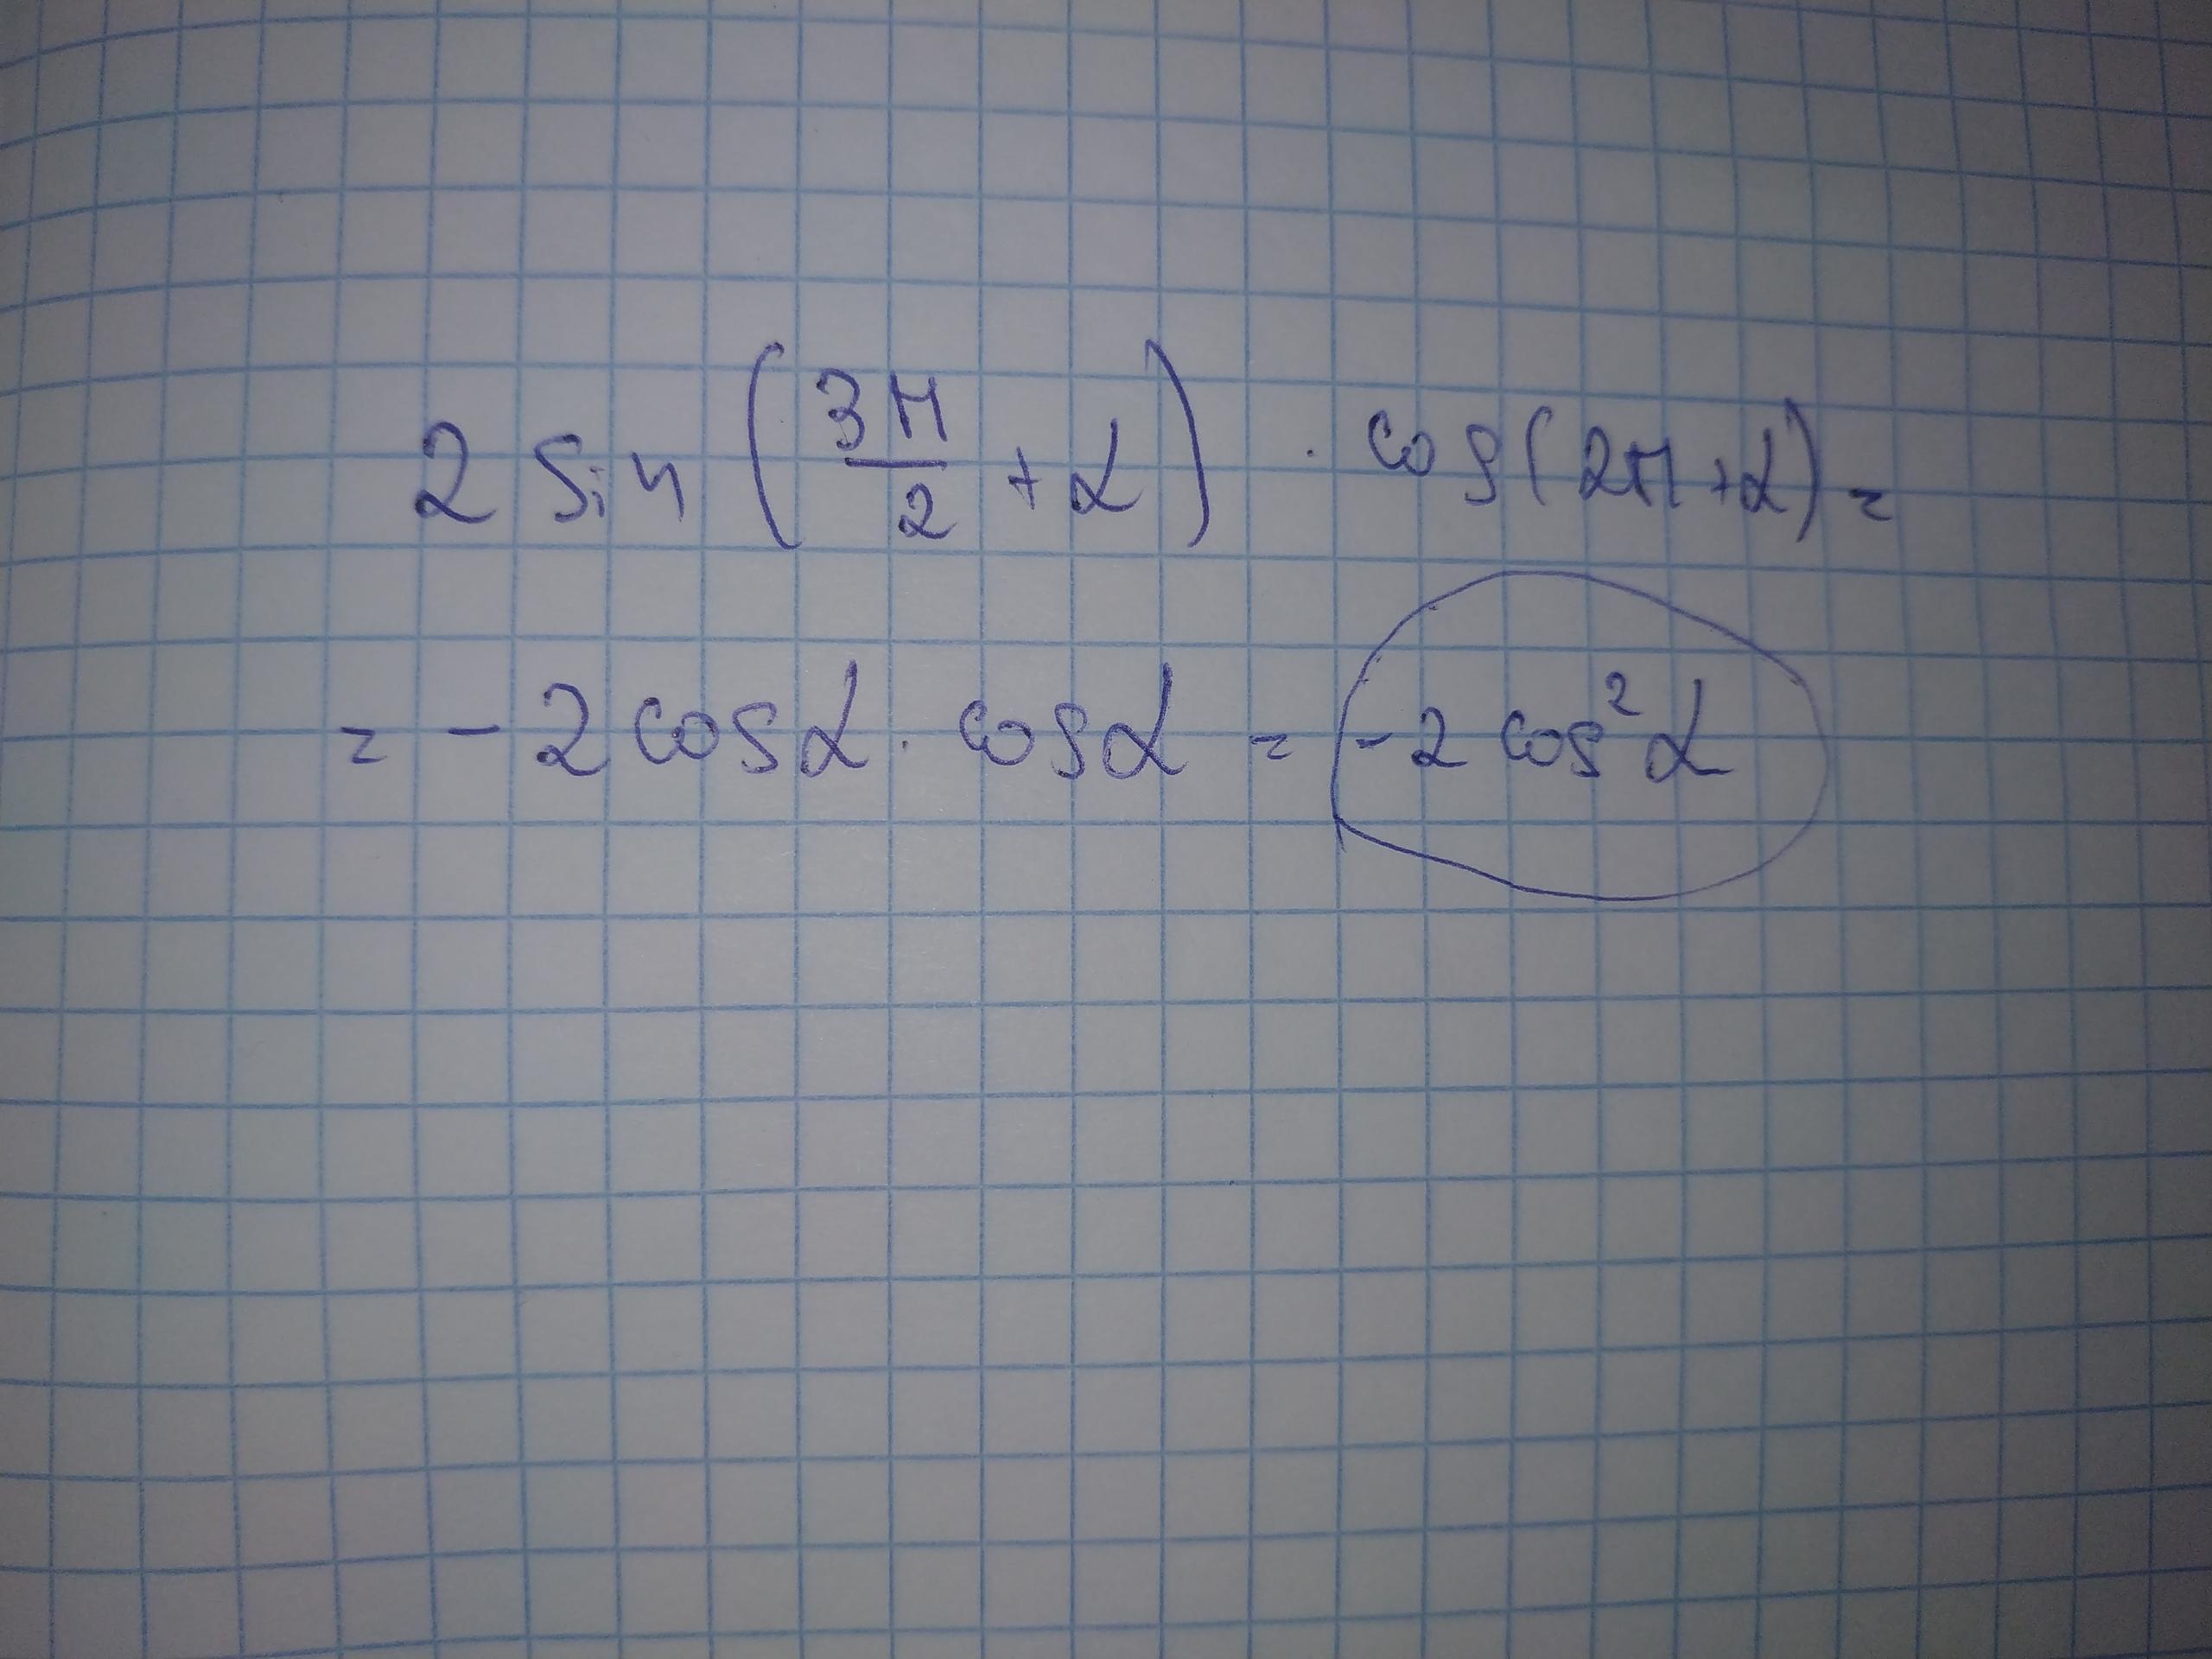 2 sin (3π/2 + α) · cos(2π + α) =
= - 2 cosα · cosα = - 2 cos²α